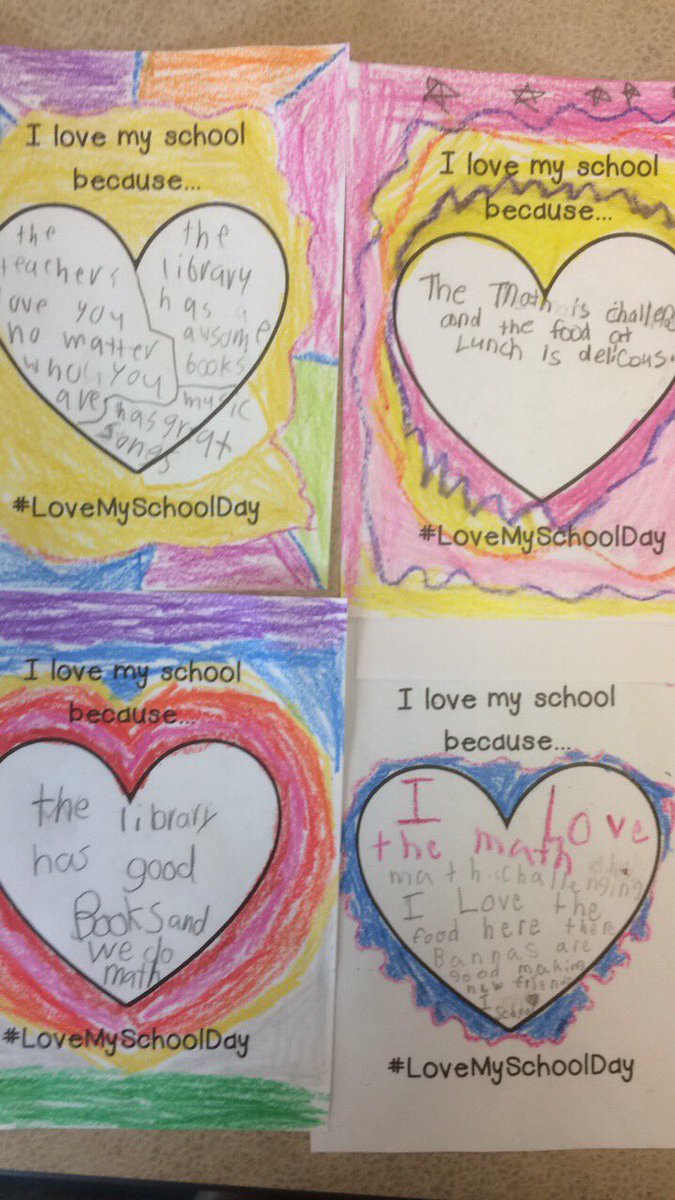 I love my school
because...
the
teachers
love you
no matter
who you
are
the
library
has a
ausome
books
music
has great
songs
#LoveMySchoolDay
I love my school
because...
The Math is challe
and the food at
Lunch is delicous.
#LoveMySchoolDay
I love my school
because...
the library
has good
Books and
we do
math
#LoveMySchoolDay
I love my school
because...
I Love
the math the
math is challenging
I Love the
food here then
Bannas are
good making
new friends
I ♥
School
#LoveMySchoolDay